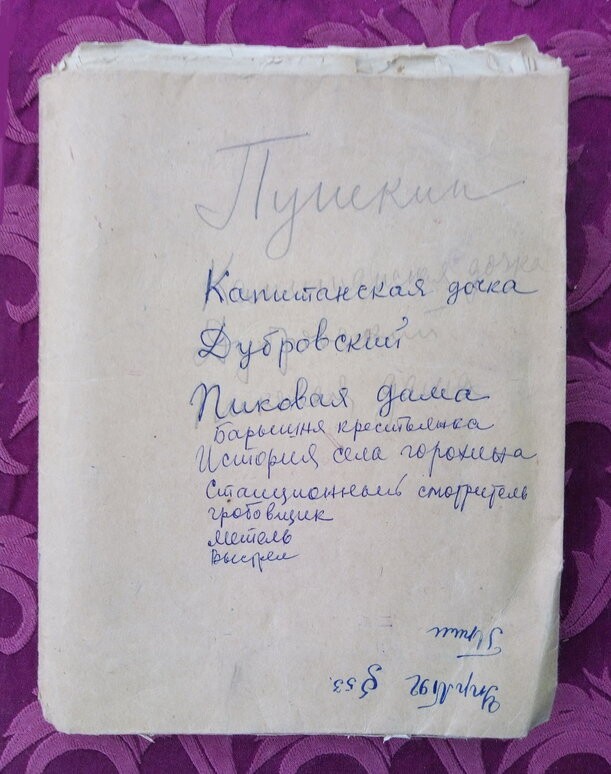 Пушкин
Капитанская дочка
Дубровский
Пиковая дама
Барышня крестьянка
История села горохина
Станционный смотритель
гробовщик
метель
Выстрел
Упр. №192 § 53.